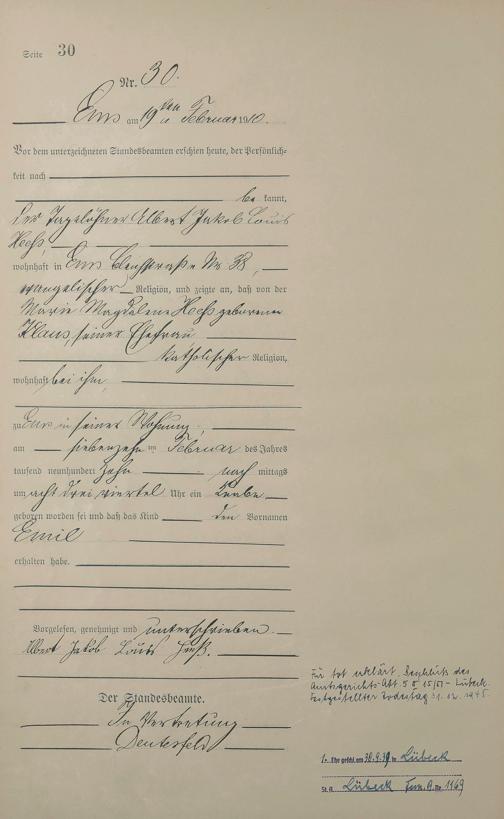 Seite 30
Nr. 30.
Ems am 19ten Februar 1910.
Vor dem unterzeichneten Standesbeamten erschien heute, der Persönlich-
keit nach
be kannt,
der Tagelöhner Albert Jakob Louis
wohnhaft in Ems Nr 38,
evangelischer Religion, und zeigte an, daß von der
Marie Magdalene geborenen
Klaus, seiner Ehefrau
katholischer Religion,
wohnhaft bei ihm,
zu Ems in seiner Wohnung,
am siebenzehn ten Februar des Jahres
tausend neunhundert zehn nach mittags
um acht drei viertel Uhr ein Knabe
geboren worden sei und daß das Kind den Vornamen
Emil
erhalten habe.
Vorgelesen, genehmigt und unterschrieben.
Albert Jakob Louis
Der Standesbeamte.
In Vertretung
Für tot erklärt. Beschluß des
Amtsgerichts Abt. 5 Lübeck.
Festgestellter Todestag 31.12.1945.
1. Ehe geschl. am 30.9.39 in Lübeck
St. A. Lübeck Fam. B. No. 1169